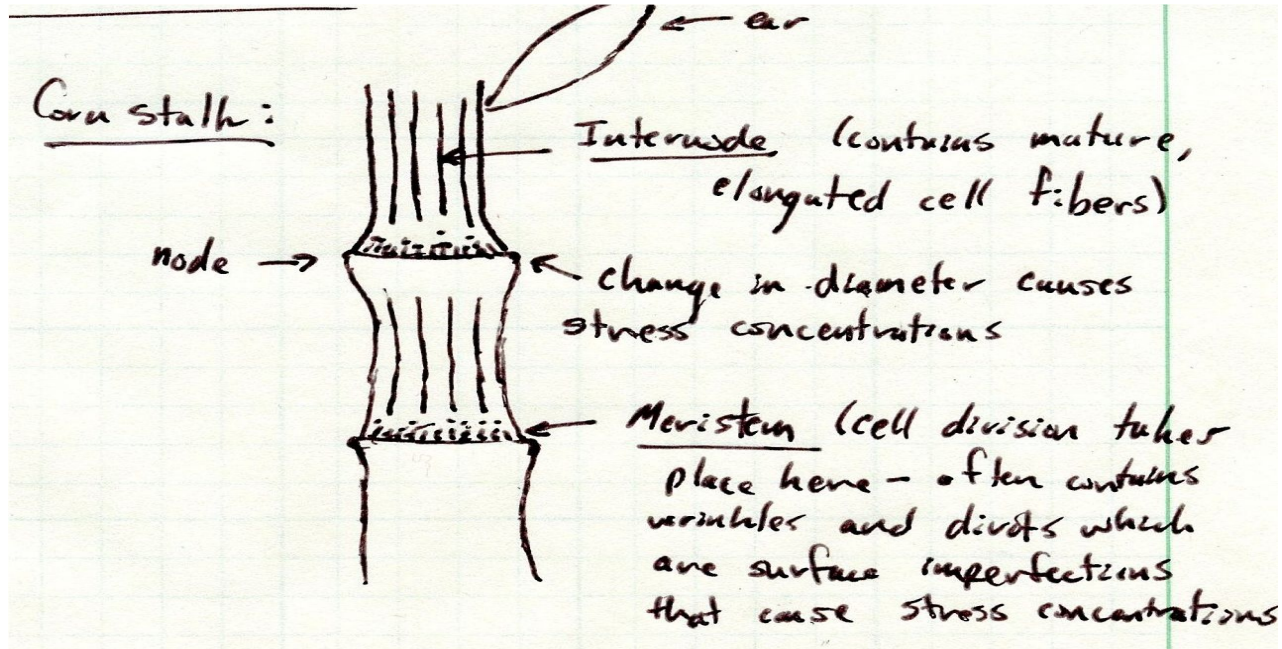 ear
Corn stalk:
Internode (contains mature,
elongated cell fibers)
node
change in diameter causes
stress concentrations
Meristem (cell division takes
place here - often contains
wrinkles and divots which
are surface imperfections
that cause stress concentrations